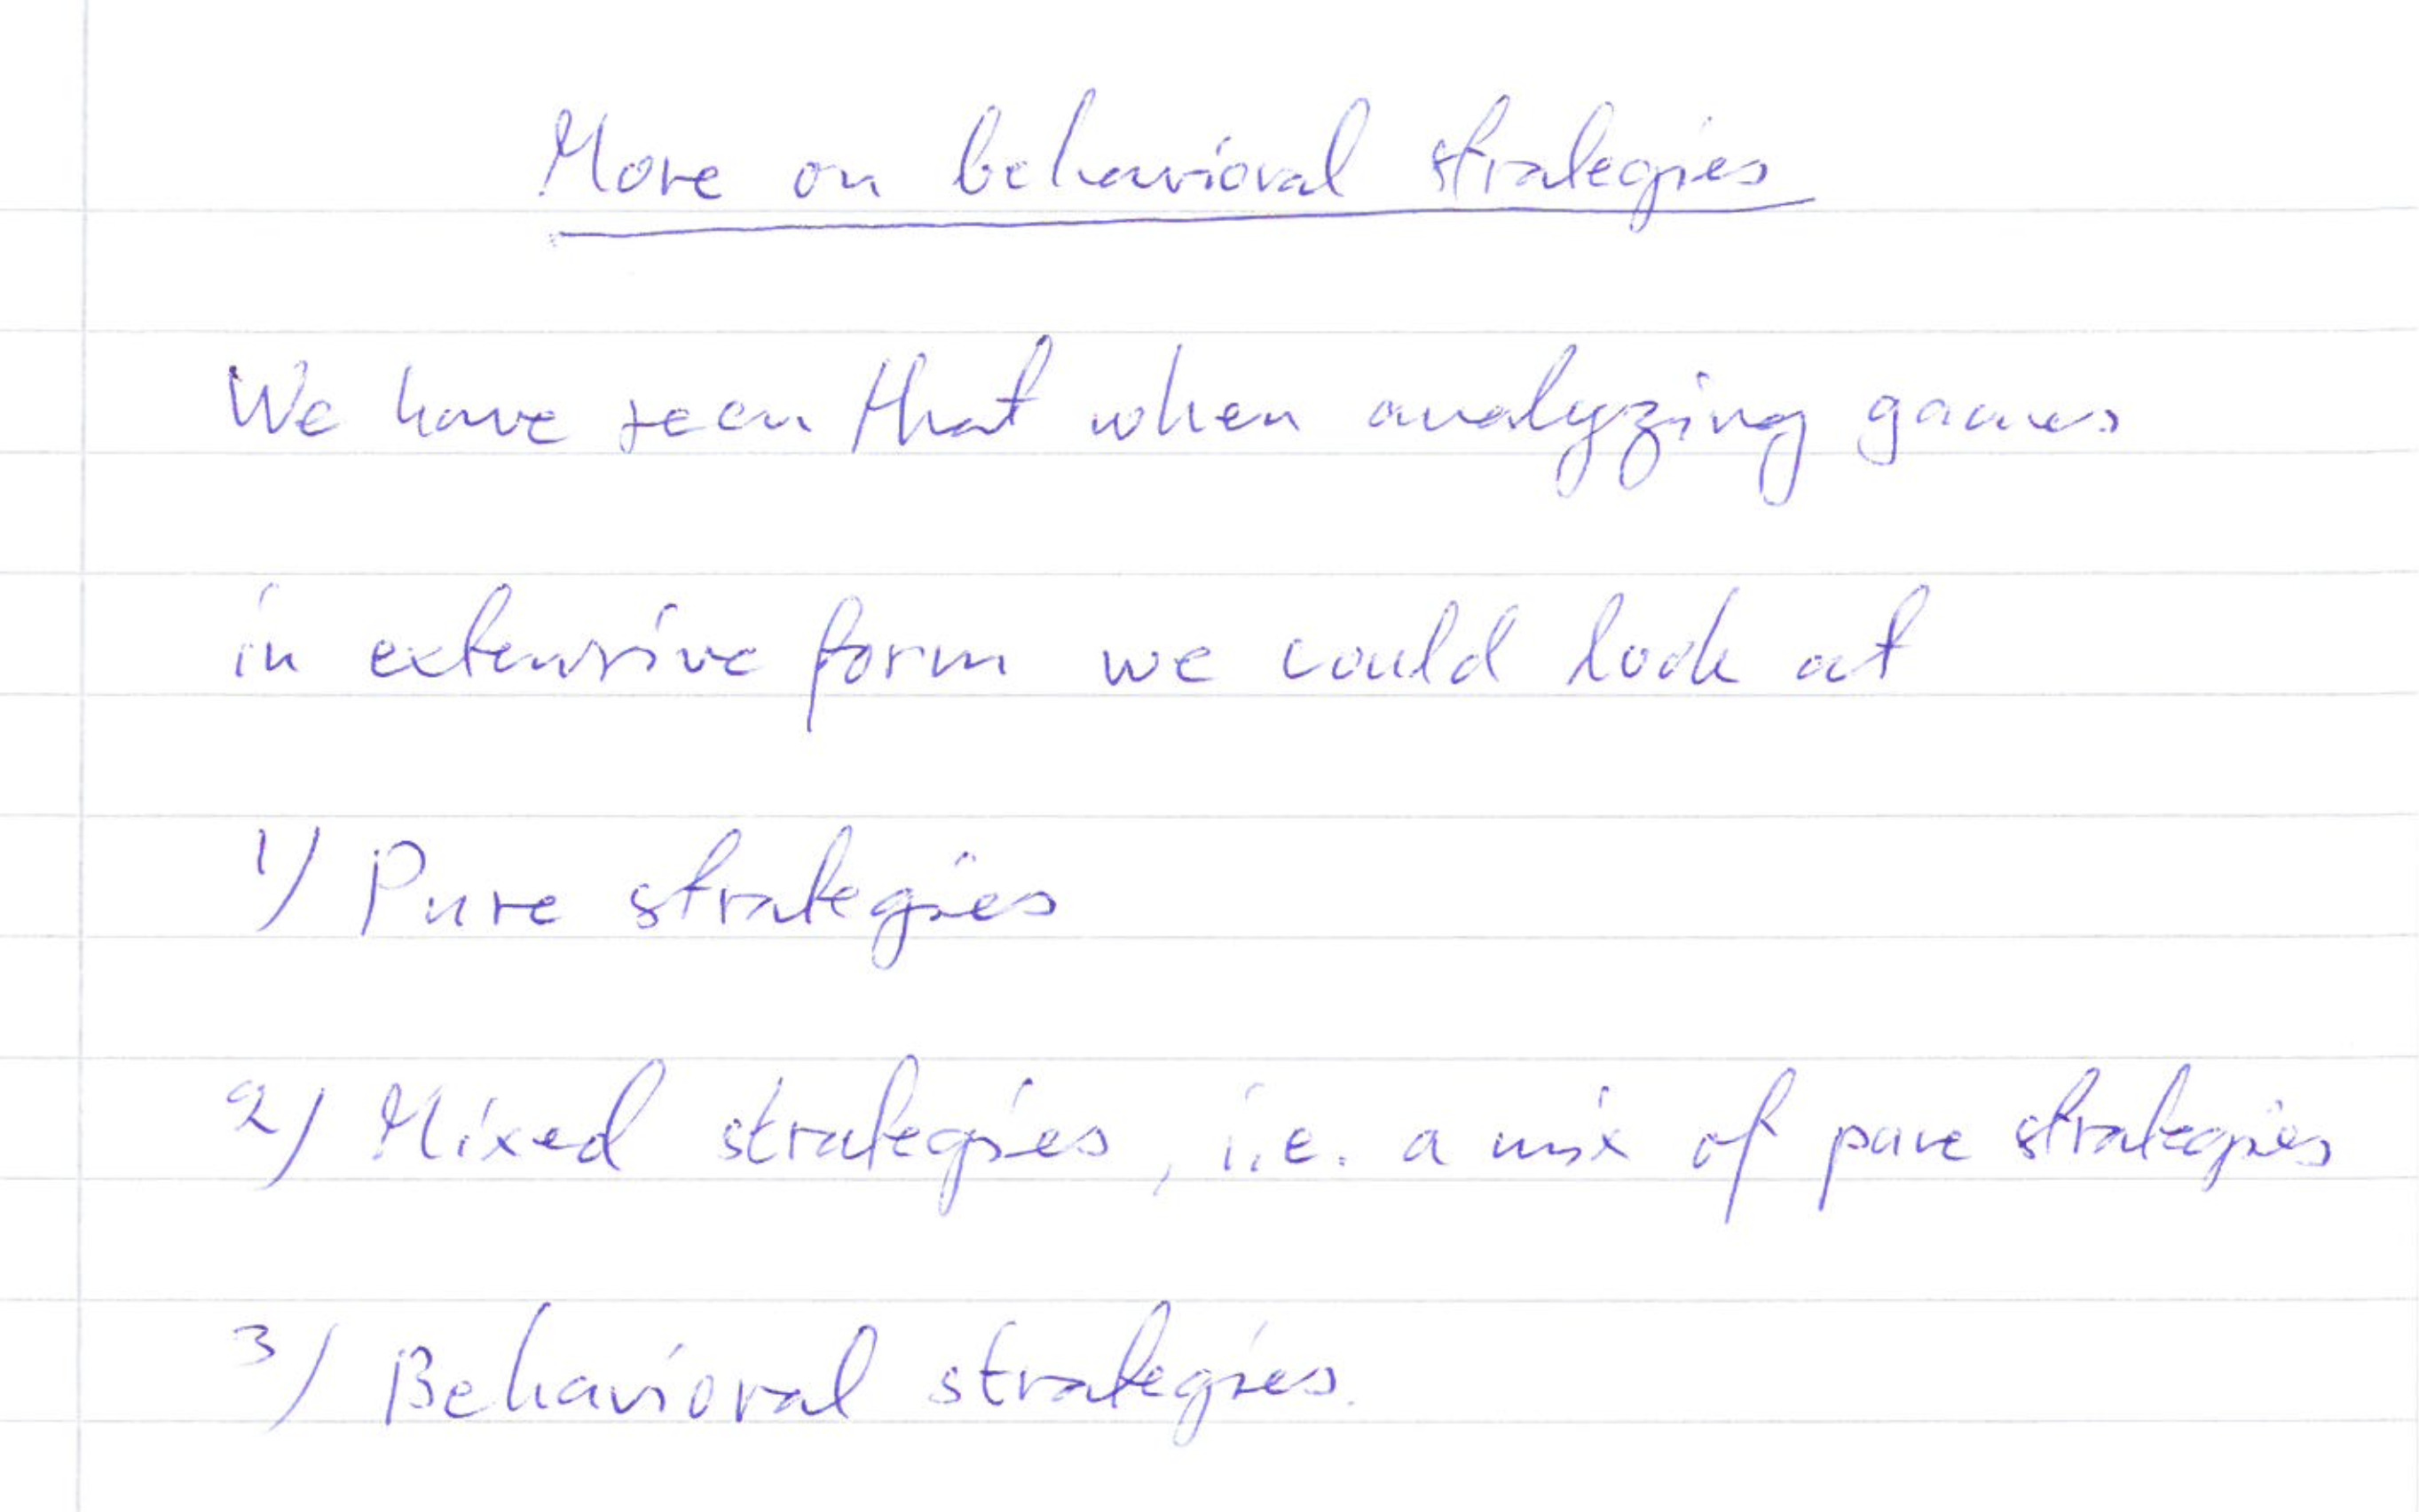 More on behavioral strategies
We have seen that when analyzing games
in extensive form we could look at
1) Pure strategies
2) Mixed strategies, i.e. a mix of pure strategies
3) Behavioral strategies.